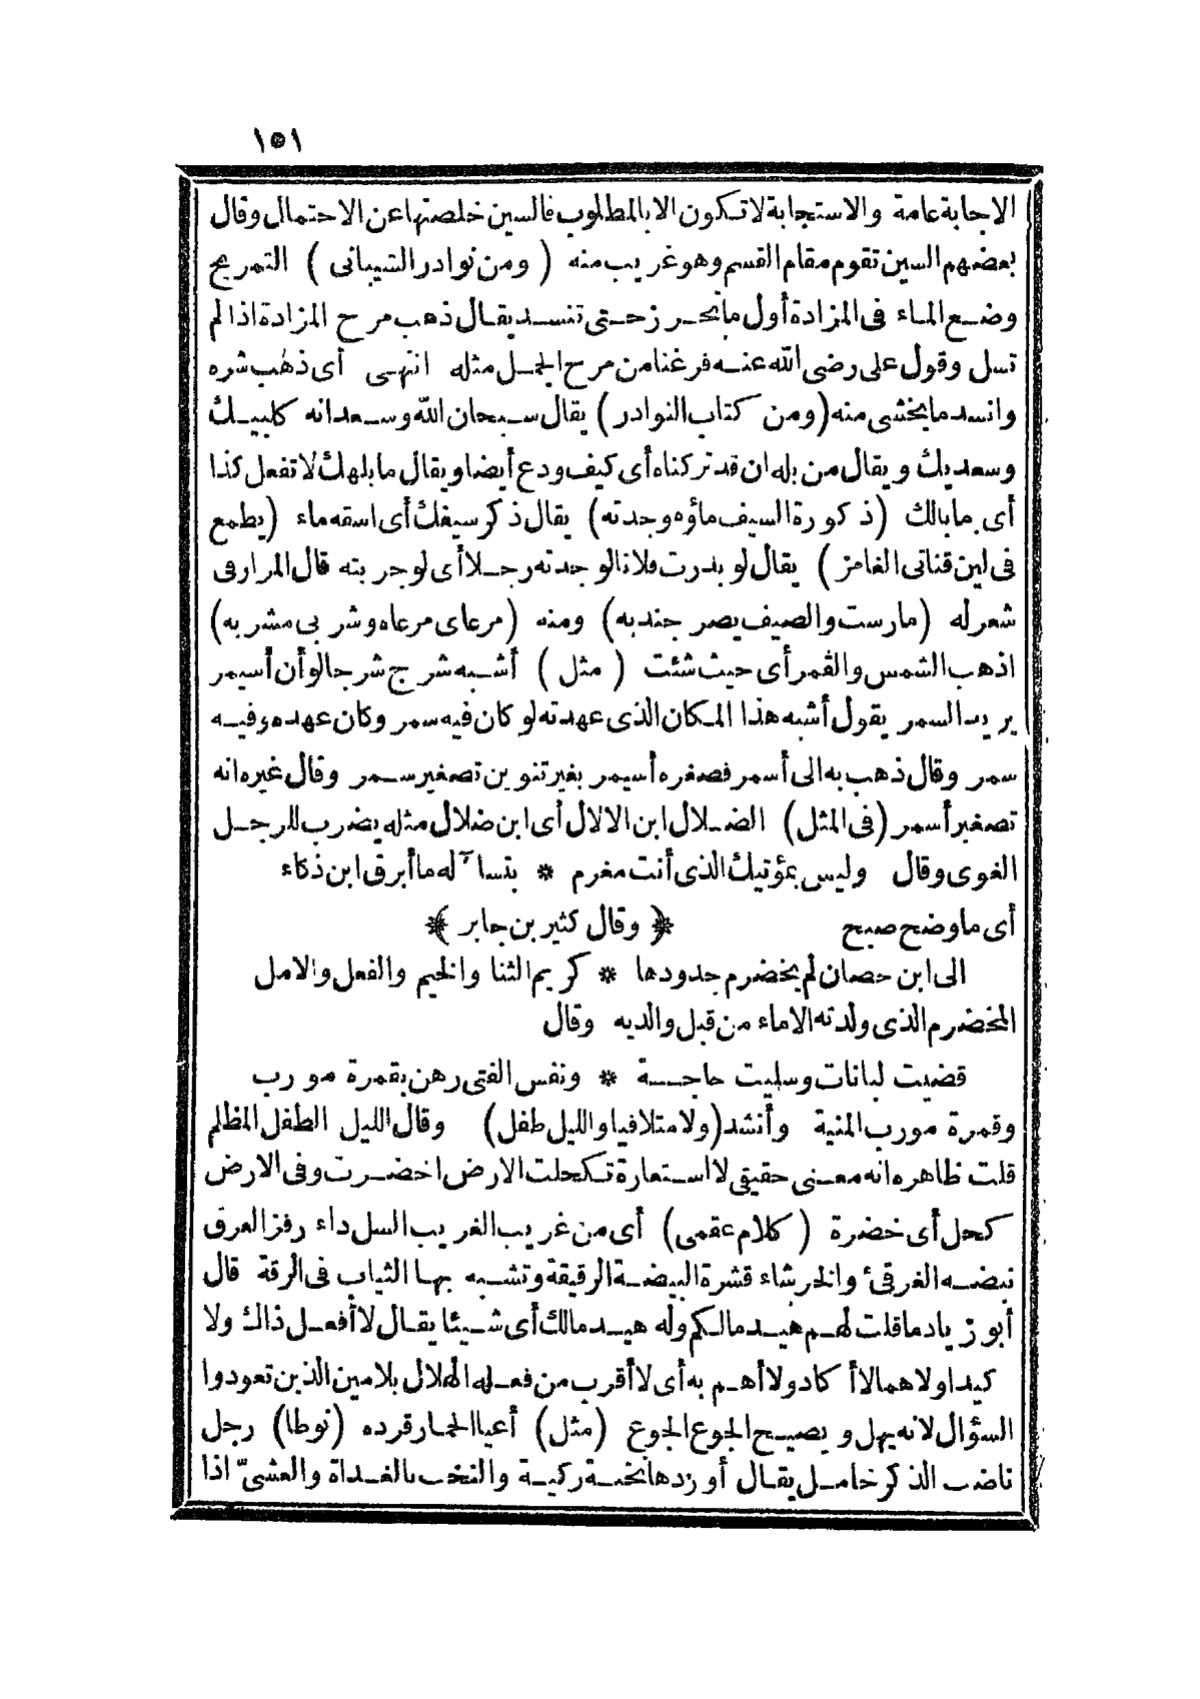 ١٥١
الاجابة عامة والاستجابة لا تكون الا بالمطلوب فالسين خلصتها عن الاحتمال وقال
بعضهم السين تقوم مقام القسم وهو غريب منه ( ومن نوادر الشيبانى ) التمريح
وضع الماء فى المزادة أول ما تخرز حتى تنسد يقال ذهب مرح المزادة اذا لم
تسل وقول على رضى الله عنه فرغنا من مرح الجمل مثله انتهى أى ذهب شره
وانسد ما يخشى منه (ومن كتاب النوادر) يقال سبحان الله وسعدانه كلبيك
وسعديك ويقال من بله ان قد تركناه أى كيف ودع أيضا ويقال ما بلهك لا تفعل كذا
أى ما بالك (ذكورة السيف ماؤه وحدته) يقال ذكر سيفك أى اسقه ماء (يطمع
فى لين قناتى الغامز ) يقال لو بدرت فلانا لوجدته رجلا أى لو جربته قال المرار فى
شعر له (مارست والصيف يصر جندبه) ومنه (مرعاى مرعاه وشربى مشربه)
اذهب الشمس والقمر أى حيث شئت ( مثل ) أشبه شرج شرجا لو أن أسيمر
يريد السمر يقول أشبه هذا المكان الذى عهدته لو كان فيه سمر وكان عهده وفيه
سمر وقال ذهب به الى أسمر فصغره أسيمر بغير تنوين تصغير سمر وقال غيره انه
تصغير أسمر (فى المثل) الضلال ابن الالال أى ابن ضلال مثله يضرب للرجل
الغوى وقال وليس بمؤتيك الذى أنت مغرم * بتسآله ما أبرق ابن ذكاء
أى ما وضح صبح ﴿ وقال كثير بن جابر ﴾
الى ابن حصان لم يخضرم جدودها * كريم الثنا والخيم والفعل والامل
المخضرم الذى ولدته الاماء من قبل والديه وقال
قضيت لبانات وسليت حاجة * ونفس الفتى رهن بقمرة مورب
وقمرة مورب المنية وأنشد (ولا متلافيا والليل طفل) وقال الليل الطفل المظلم
قلت ظاهره انه معنى حقيقى لا استعارة تكحلت الارض اخضرت وفى الارض
كحل أى خضرة ( كلام عقمى) أى من غريب الغريب السل داء رفز العرق
نبضه الغرقئ والخرشاء قشرة البيضة الرقيقة وتشبه بها الثياب فى الرقة قال
أبو زياد ما قلت لهم هيد مالكم وله هيد مالك أى شيئا يقال لا أفعل ذاك ولا
كيدا ولا هما لا أكاد ولا أهم به أى لا أقرب من فعله الهلال بلامين الذين تعودوا
السؤال لانه يهل ويصيح الجوع الجوع (مثل) أعيا الحمار قرده (نوطا) رجل
ناضب الذكر خامل يقال أوردها نخبة ركية والنخب بالغداة والعشىّ اذا